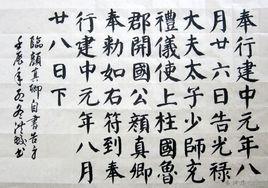 奉行建中元年八
月廿六日告光禄
大夫太子少師充
禮儀使上柱國魯
郡開國公顔真卿
奉勅如右符到奉
行建中元年八月
廿八日下
臨顔真卿自書告身